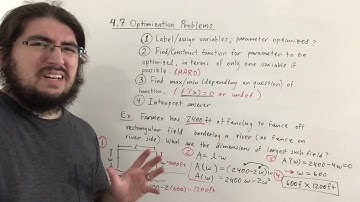 4.7 Optimization Problems
① Label/assign variables, parameter optimized?
② Find/Construct function for parameter to be
optimized, in terms of only one variable if
possible (HARD)
③ Find max/min (depending on question) of
function. (f'(x)=0 or undef.)
④ Interpret answer.
Ex: Farmer has 2400ft of fencing to fence off
rectangular field bordering a river (no fence on
river side) What are the dimensions of largest such field?
①
②
A = l·w
A(w) = (2400-2w)w
A(w) = 2400w-2w²
③ A'(w) = 2400-4w=0
w = 600
600ft X 1200ft
=1200ft